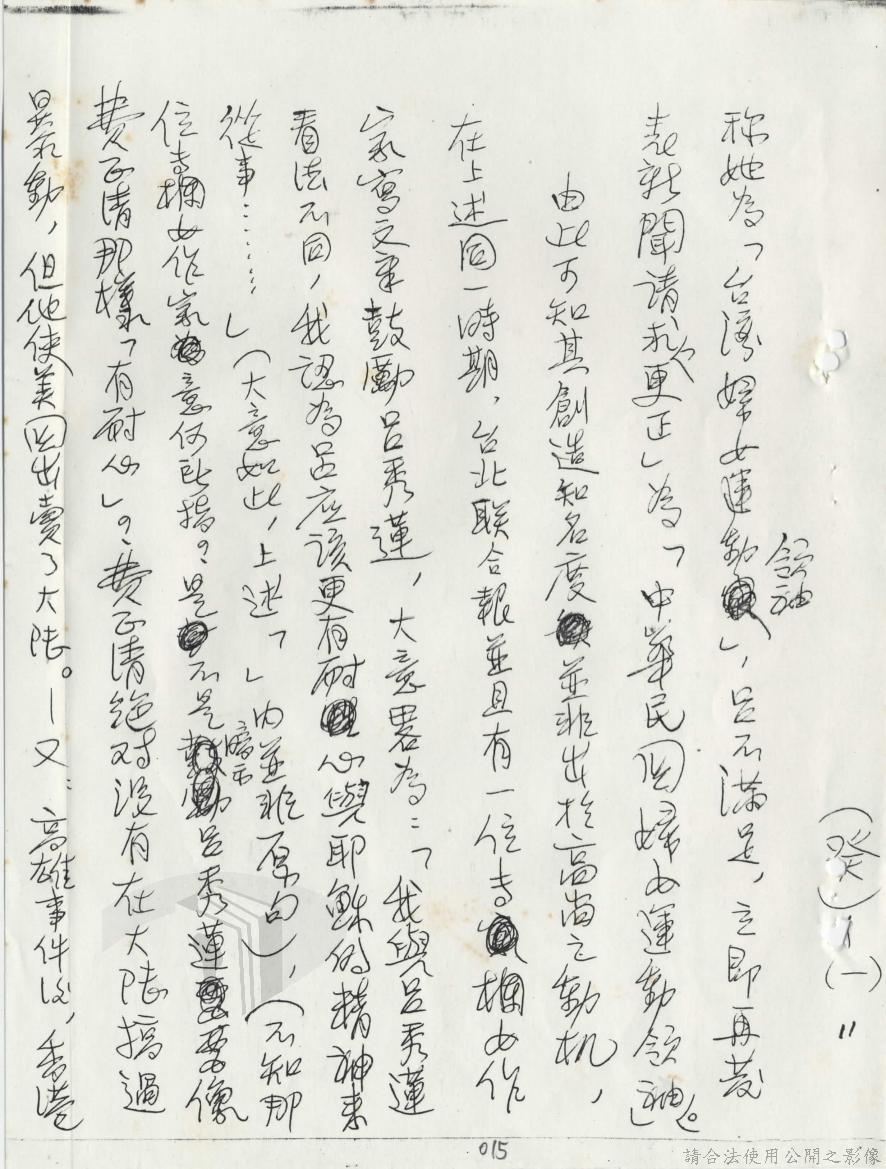 （癸）（一）11
稱她為「台灣婦女運動領袖」，呂不滿足，立即再發
表新聞請求更正」為「中華民囯婦女運動領袖」。
由此可知其創造知名度並非出於高尚之動机，
在上述同一時期，台北联合報並且有一位专欄女作
家寫文章鼓勵呂秀蓮，大意畧為：「我與呂秀蓮
看法不同，我認為呂应該更有耐心與耶穌的精神來
從事………」（大意如此，上述「」內並非原句），（不知那
位专欄女作家意何所指？是不是暗示呂秀蓮要像
費正清那樣「有耐心」？費正清絕对沒有在大陸搞過
暴動，但他使美囯出賣了大陸。—又：高雄事件後，香港
015
請合法使用公開之影像